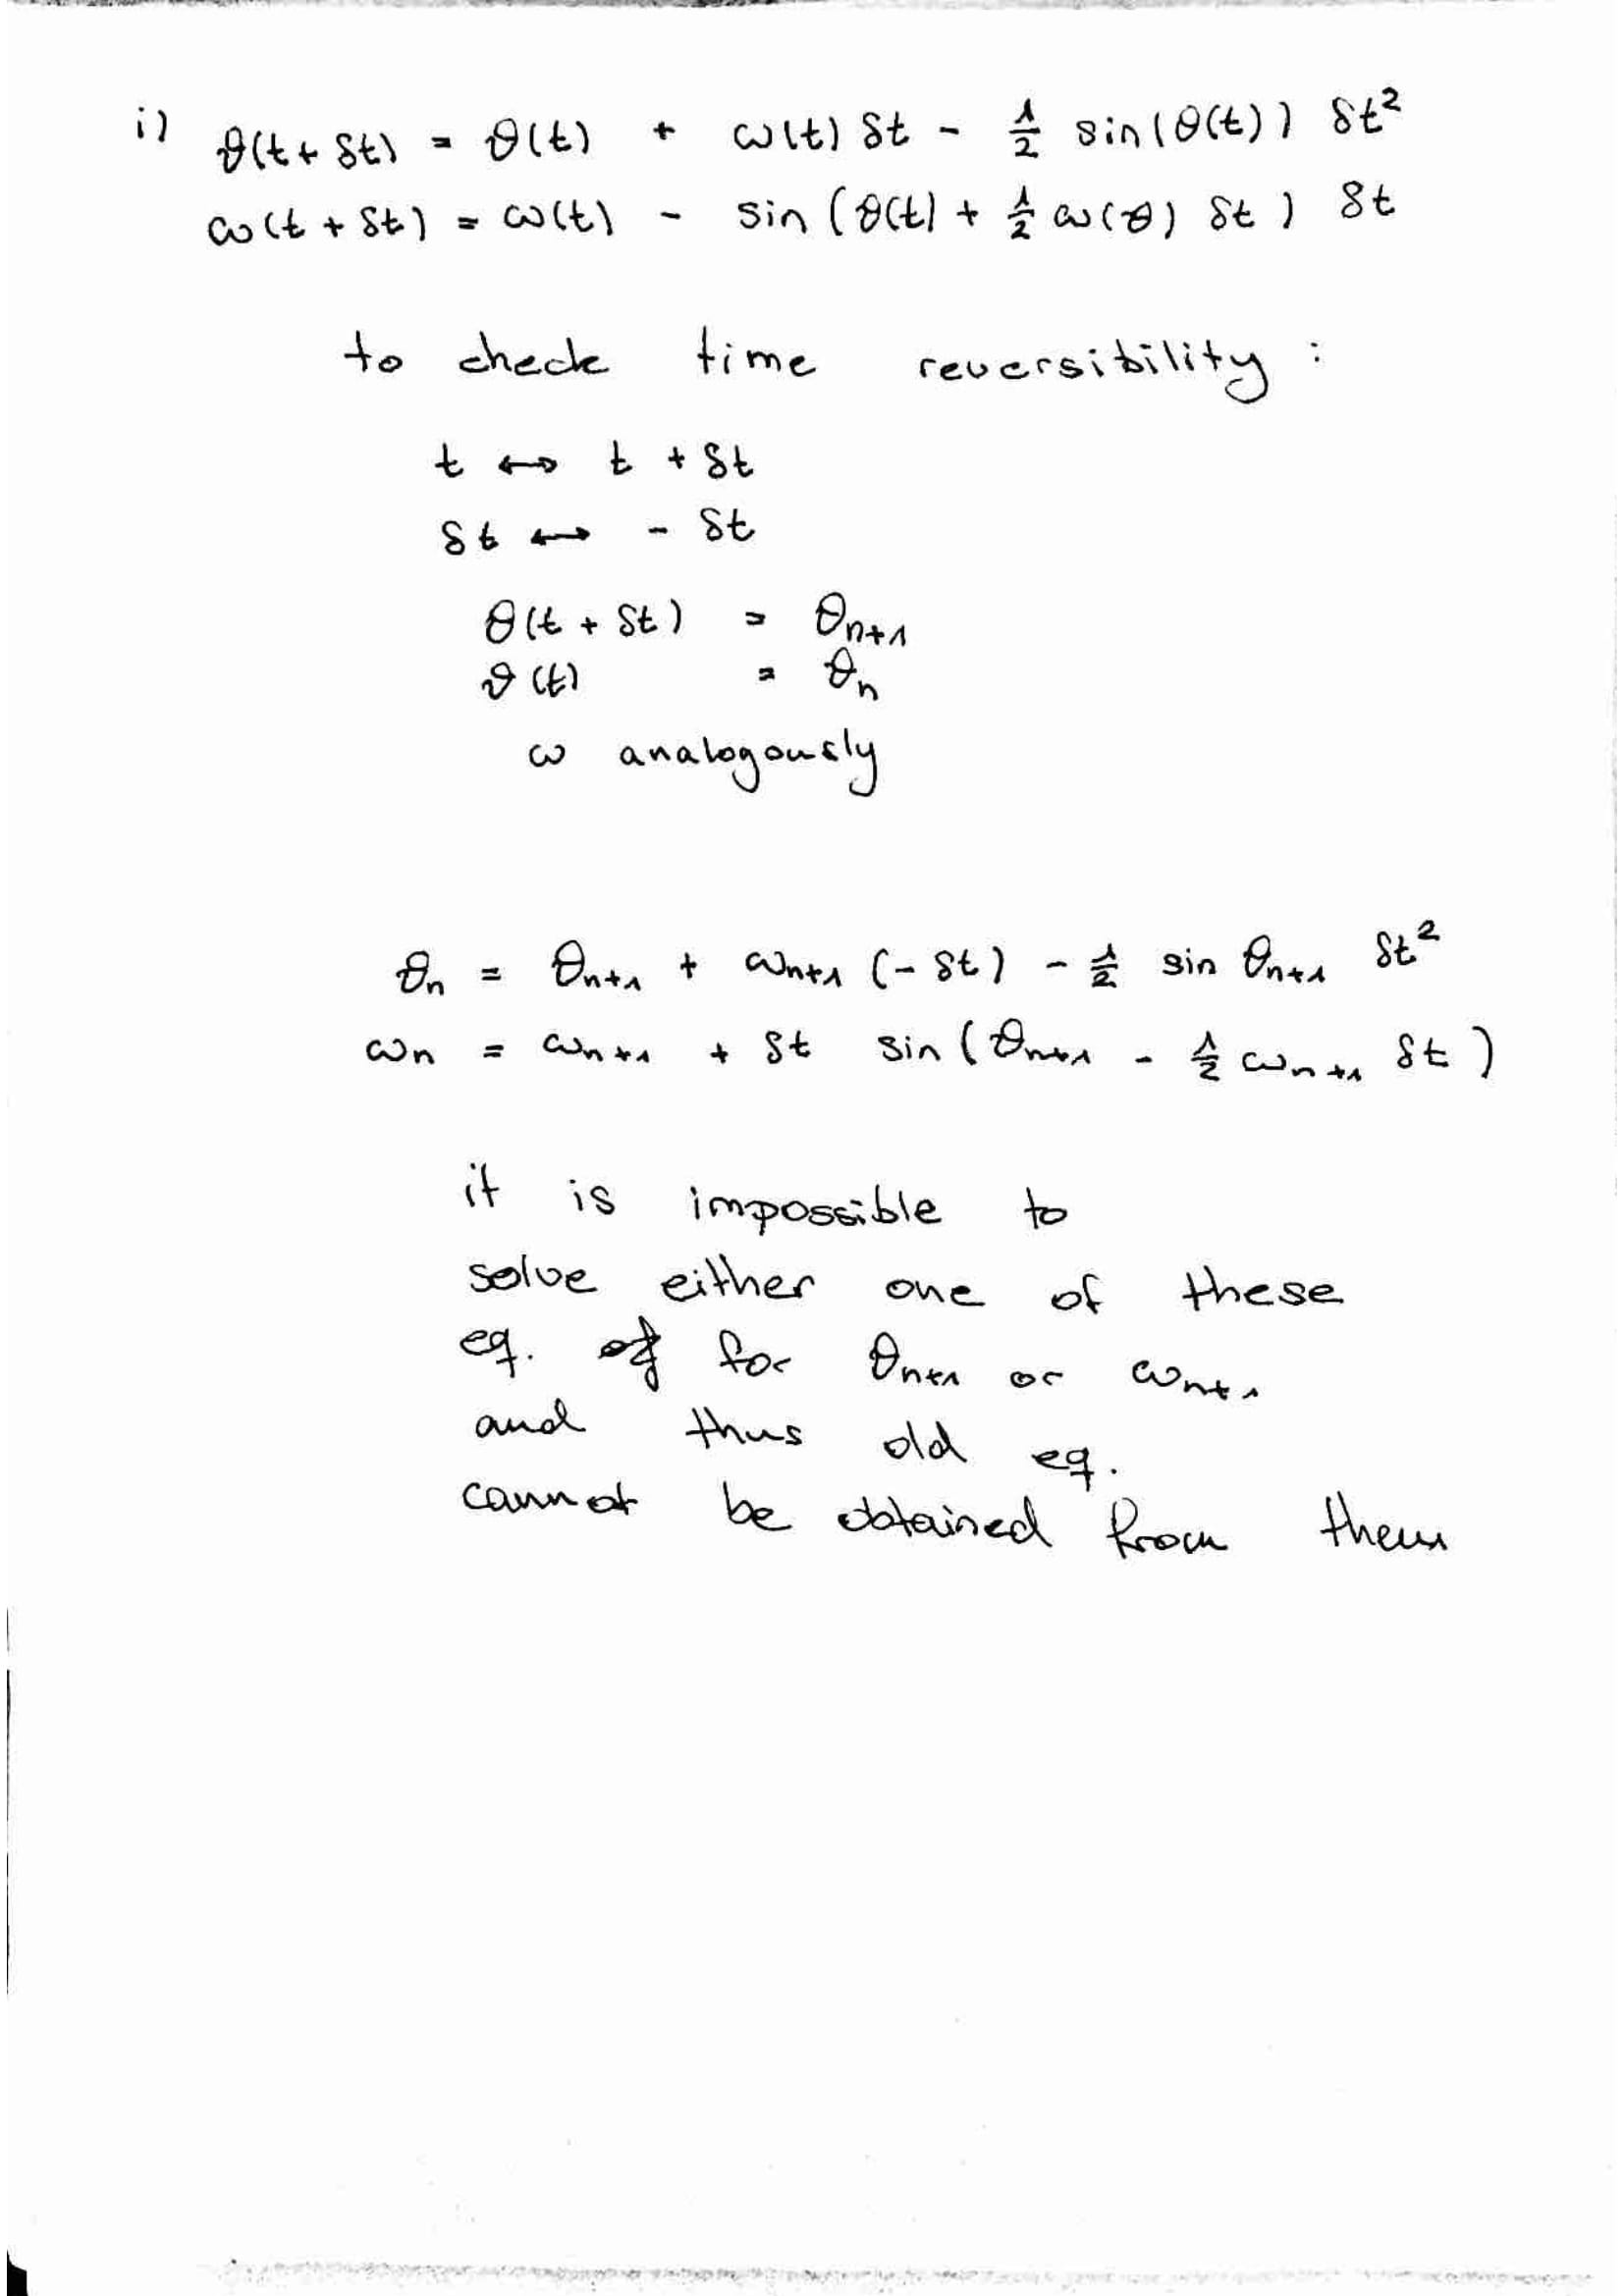 i) θ(t + δt) = θ(t) + ω(t) δt - 1/2 sin(θ(t)) δt²
ω(t + δt) = ω(t) - sin(θ(t) + 1/2 ω(θ) δt) δt
to check time reversibility :
t ↔ t + δt
δt ↔ - δt
θ(t + δt) = θn+1
θ(t) = θn
ω analogously
θn = θn+1 + ωn+1 (- δt) - 1/2 sin θn+1 δt²
ωn = ωn+1 + δt sin(θn+1 - 1/2 ωn+1 δt)
it is impossible to
solve either one of these
eq. for θn+1 or ωn+1
and thus old eq.
cannot be obtained from them